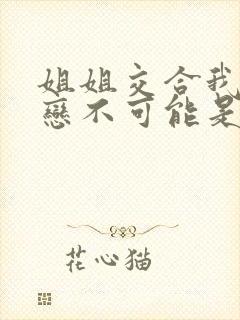 姐姐交合我
戀不可能是
花心猫